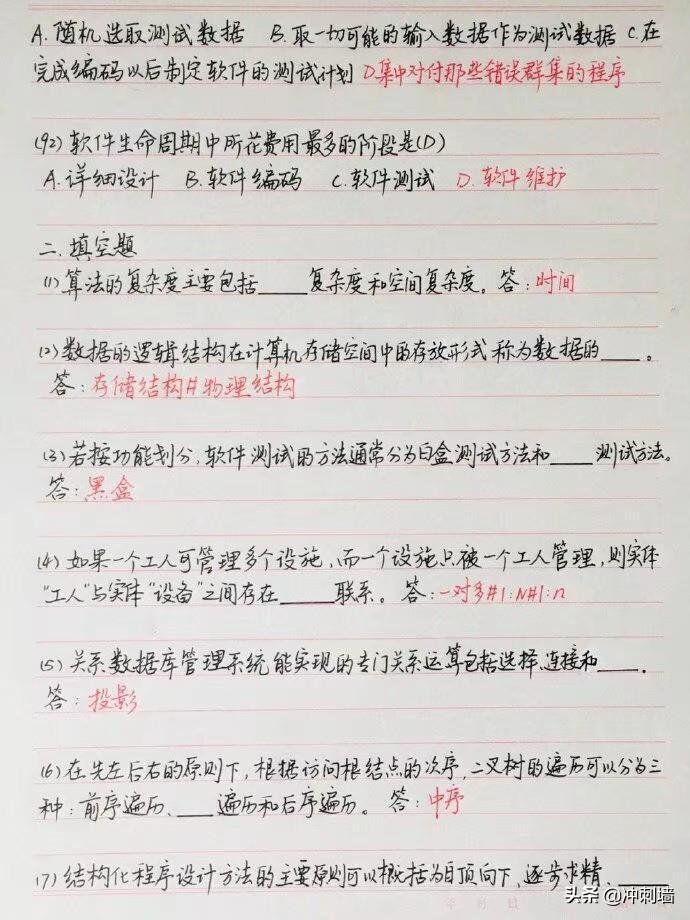 A. 随机选取测试数据 B. 取一切可能的输入数据作为测试数据 C. 在
完成编码以后制定软件的测试计划 D. 集中对付那些错误群集的程序
(92) 软件生命周期中所花费用最多的阶段是(D)
A. 详细设计 B. 软件编码 C. 软件测试 D. 软件维护
二. 填空题
(1) 算法的复杂度主要包括____复杂度和空间复杂度。答:时间
(2) 数据的逻辑结构在计算机存储空间中的存放形式称为数据的____。
答:存储结构#物理结构
(3) 若按功能划分,软件测试的方法通常分为白盒测试方法和____测试方法。
答:黑盒
(4) 如果一个工人可管理多个设施,而一个设施只被一个工人管理,则实体
“工人”与实体“设备”之间存在____联系。答:一对多#1:N#1:n
(5) 关系数据库管理系统能实现的专门关系运算包括选择、连接和____。
答:投影
(6) 在先左后右的原则下,根据访问根结点的次序,二叉树的遍历可以分为三
种:前序遍历、____遍历和后序遍历。答:中序
(7) 结构化程序设计方法的主要原则可以概括为自顶向下、逐步求精、____
年 月 日
头条 @冲刺墙